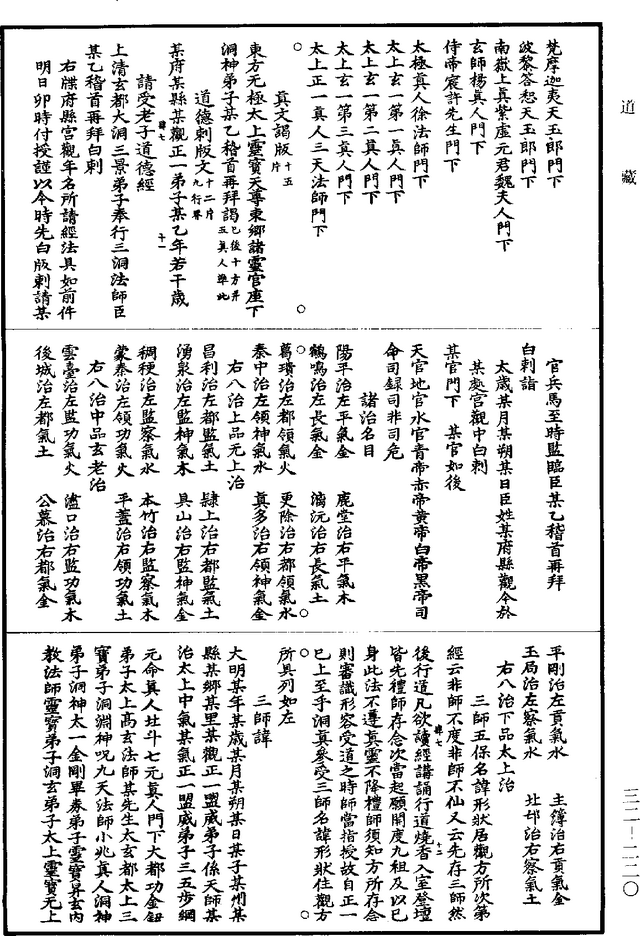 道藏
梵摩迦夷天玉郎門下
波黎答恕天玉郎門下
南嶽上真紫虛元君魏夫人門下
玄師楊真人門下
侍帝宸許先生門下
太極真人徐法師門下
太上玄一第一真人門下
太上玄一第二真人門下
太上玄一第三真人門下
太上正一真人三天法師門下
真文謁版十五片
東方无極太上靈寶天尊東鄉諸靈官座下
洞神弟子某乙稽首再拜謁已後十方并五真人準此
道德刺版文十二片九行界
某府某縣某觀正一弟子某乙年若干歲
請受老子道德經
肆七 十一
上清玄都大洞三景弟子奉行三洞法師臣
某乙稽首再拜白刺
右牒府縣宮觀年名所請經法具如前件
明日卯時付授謹以今時先白版刺請某
官兵馬至時監臨臣某乙稽首再拜
白刺詣
太歲某月某朔某日臣姓某府縣觀今於
某處宮觀中白刺
某官門下 某官如後
天官地官水官青帝赤帝黃帝白帝黑帝司
命司錄司非司危
諸治名目
陽平治左平氣金 鹿堂治右平氣木
鶴鳴治左長氣金 漓沅治右長氣土
葛璝治左都領氣火 更除治右都領氣水
秦中治左領神氣水 真多治右領神氣金
右八治上品无上治
昌利治左都監氣土 隸上治右都監氣土
湧泉治左監神氣木 具山治右監神氣金
稠稉治左監察氣水 本竹治右監察氣木
蒙秦治左領功氣火 平蓋治右領功氣土
右八治中品玄老治
雲臺治左監功氣火 濜口治右監功氣木
後城治左都氣土 公慕治右都氣金
平剛治左貢氣水 主簿治右貢氣金
玉局治左察氣水 北邙治右察氣土
右八治下品太上治
三師五保名諱形狀居觀方所次第
經云非師不度非師不仙又云先存三師然
肆七 十二
後行道凡欲讀經講誦行道燒香入室登壇
皆先禮師存念次當起願開度九祖及以已
身此法不遵真靈不降禮師須知方所存念
則審識形容受道之時師當指授故自正一
已上至乎洞真參受三師名諱形狀住觀方
所具列如左
三師諱
大明某年某歲某月某朔某日某子某州某
縣某鄉某里某觀正一盟威弟子係天師某
治太上中氣某氣正一盟威弟子三五步綱
元命真人北斗七元真人門下大都功金鈕
弟子太上高玄法師某先生太玄都太上三
寶弟子洞淵神呪九天法師小兆真人洞神
弟子洞神太一金剛畢券弟子靈寶昇玄內
教法師靈寶弟子洞玄弟子太上靈寶无上
三二—二二〇